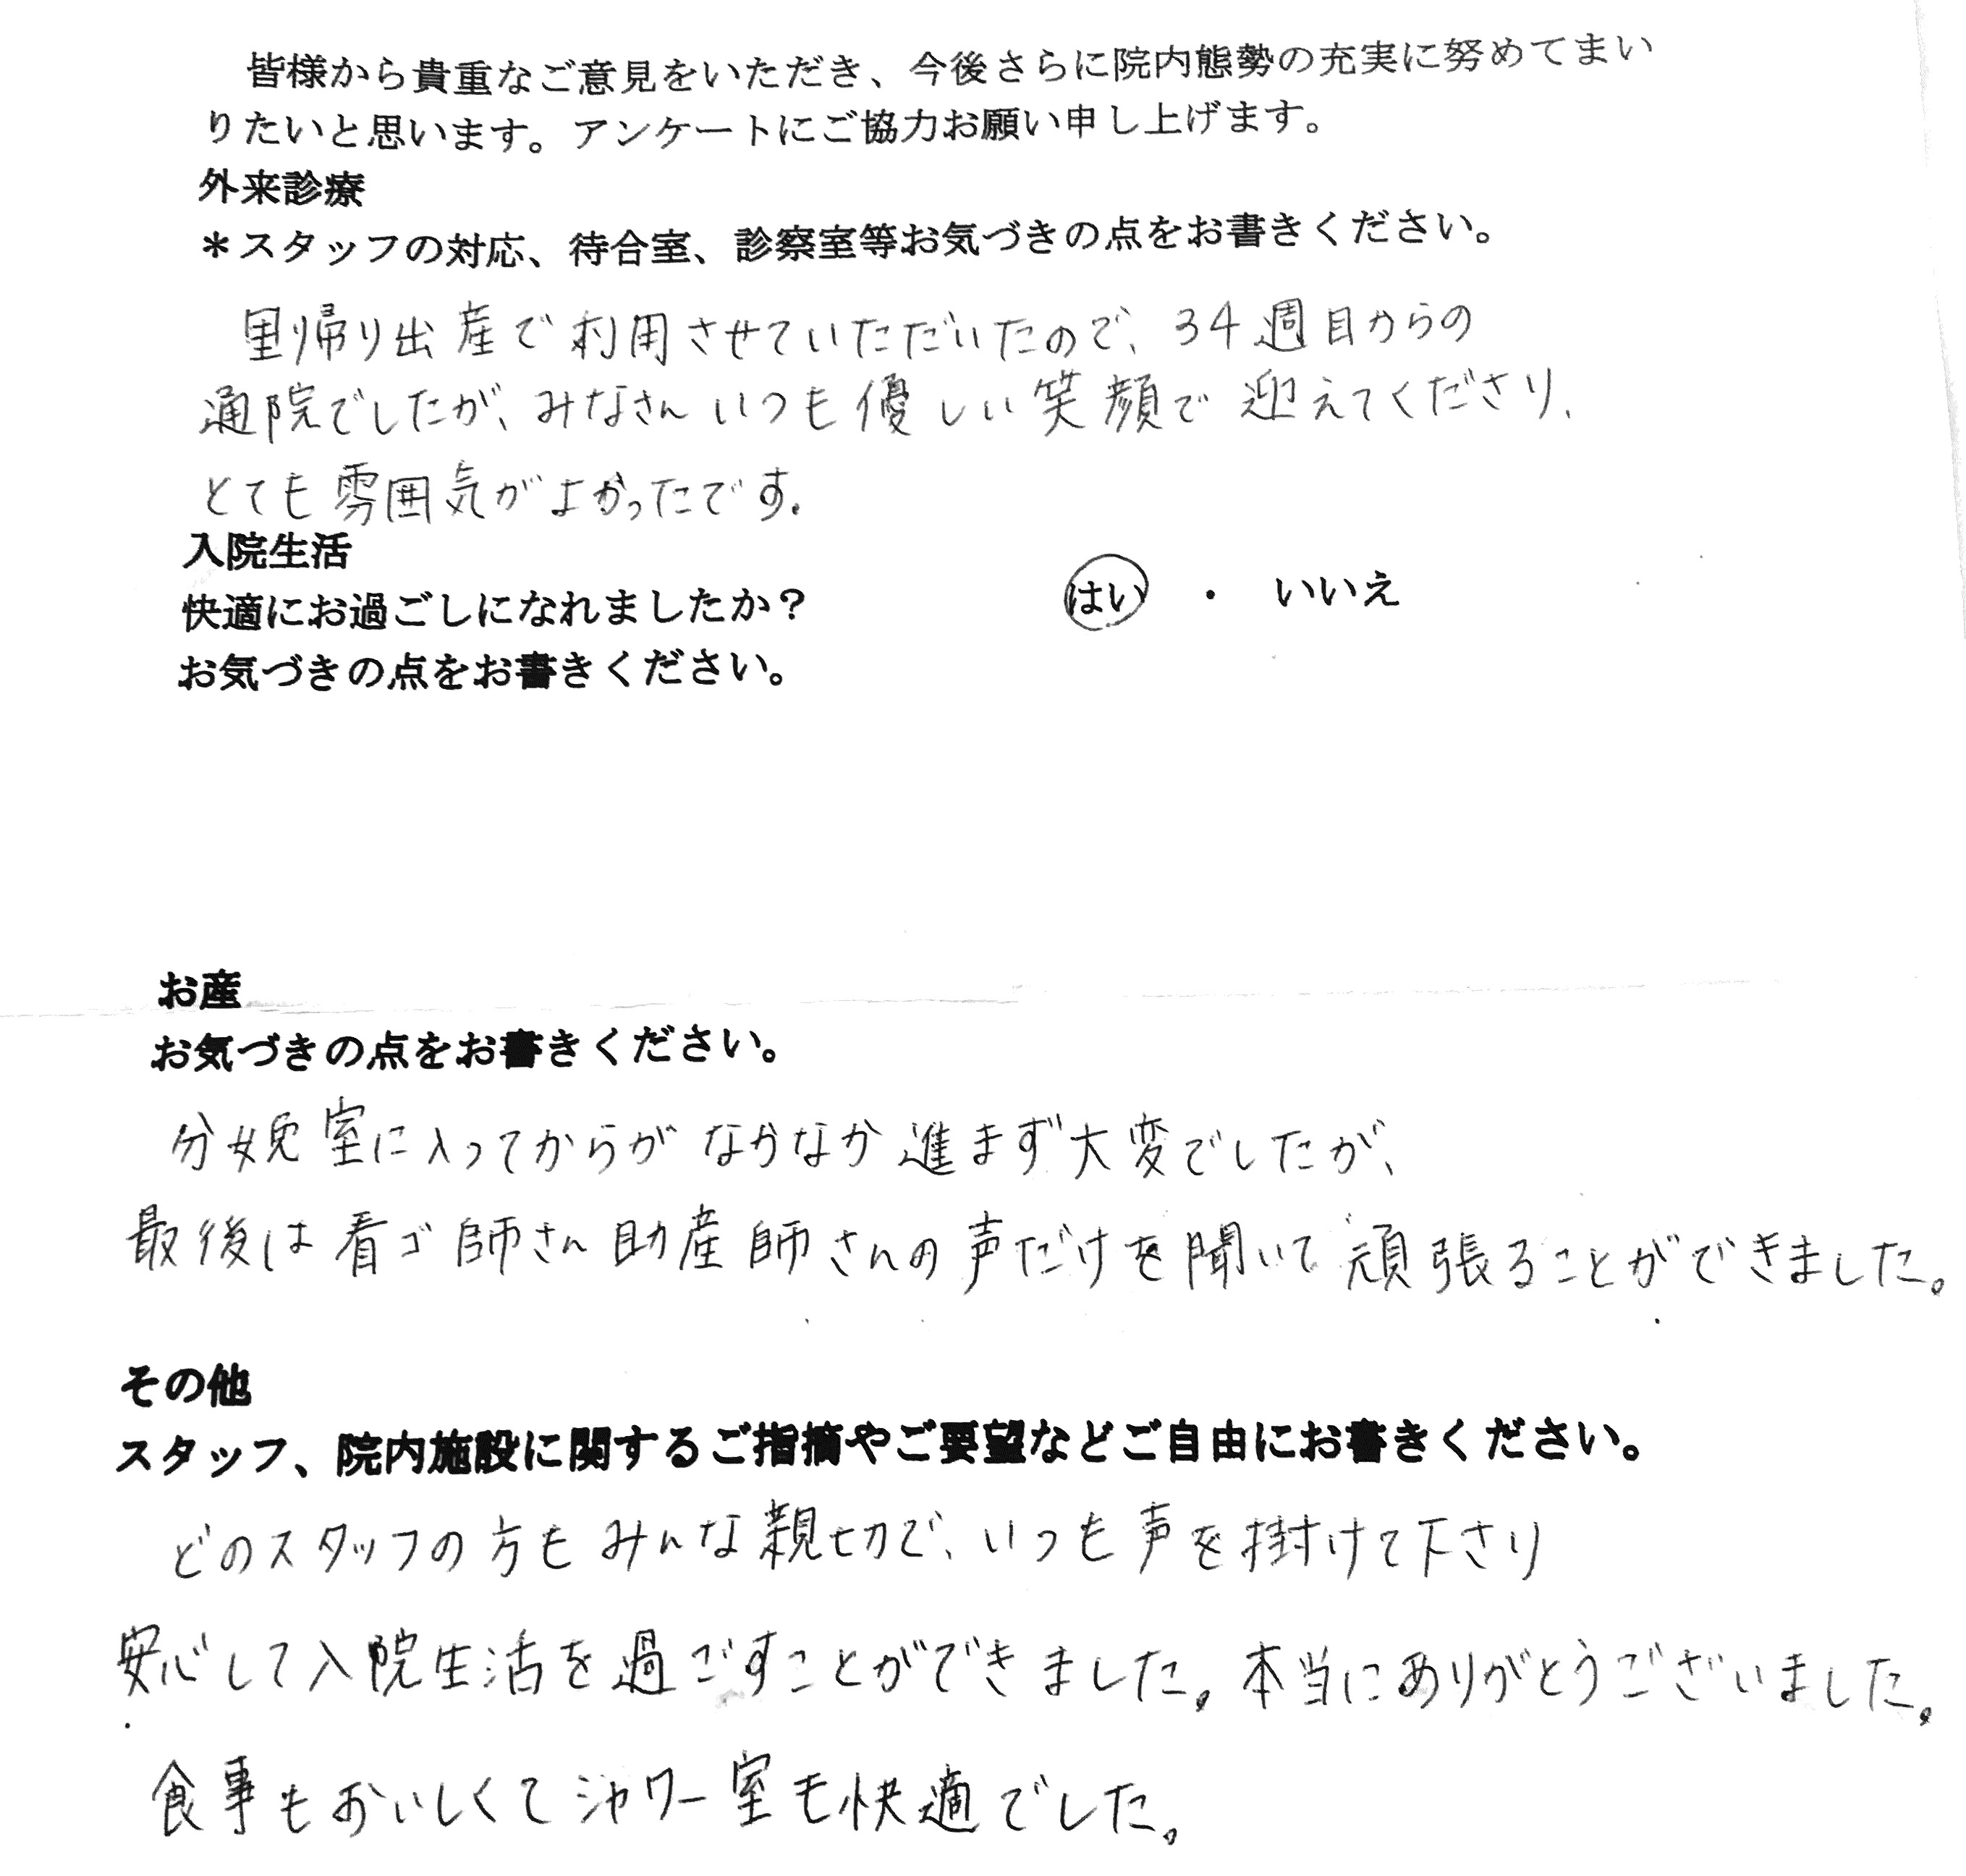 皆様から貴重なご意見をいただき、今後さらに院内態勢の充実に努めてまい
りたいと思います。アンケートにご協力お願い申し上げます。
外来診療
＊スタッフの対応、待合室、診察室等お気づきの点をお書きください。
里り帰り出産で利用させていただいたので、34週目からの
通院でしたが、みなさんいつも優しい笑顔で迎えてくださり、
とても雰囲気がよかったです。
入院生活
快適にお過ごしになれましたか？ はい ・ いいえ
お気づきの点をお書きください。
お産
お気づきの点をお書きください。
分娩室に入ってからがなかなか進まず大変でしたが、
最後は看ゴ師さん助産師さんの声だけを聞いて頑張ることができました。
その他
スタッフ、院内施設に関するご指摘やご要望などご自由にお書きください。
どのスタッフの方もみんな親切で、いつも声を掛けて下さり
安心して入院生活を過ごすことができました。本当にありがとうございました。
食事もおいしくてシャワー室も快適でした。